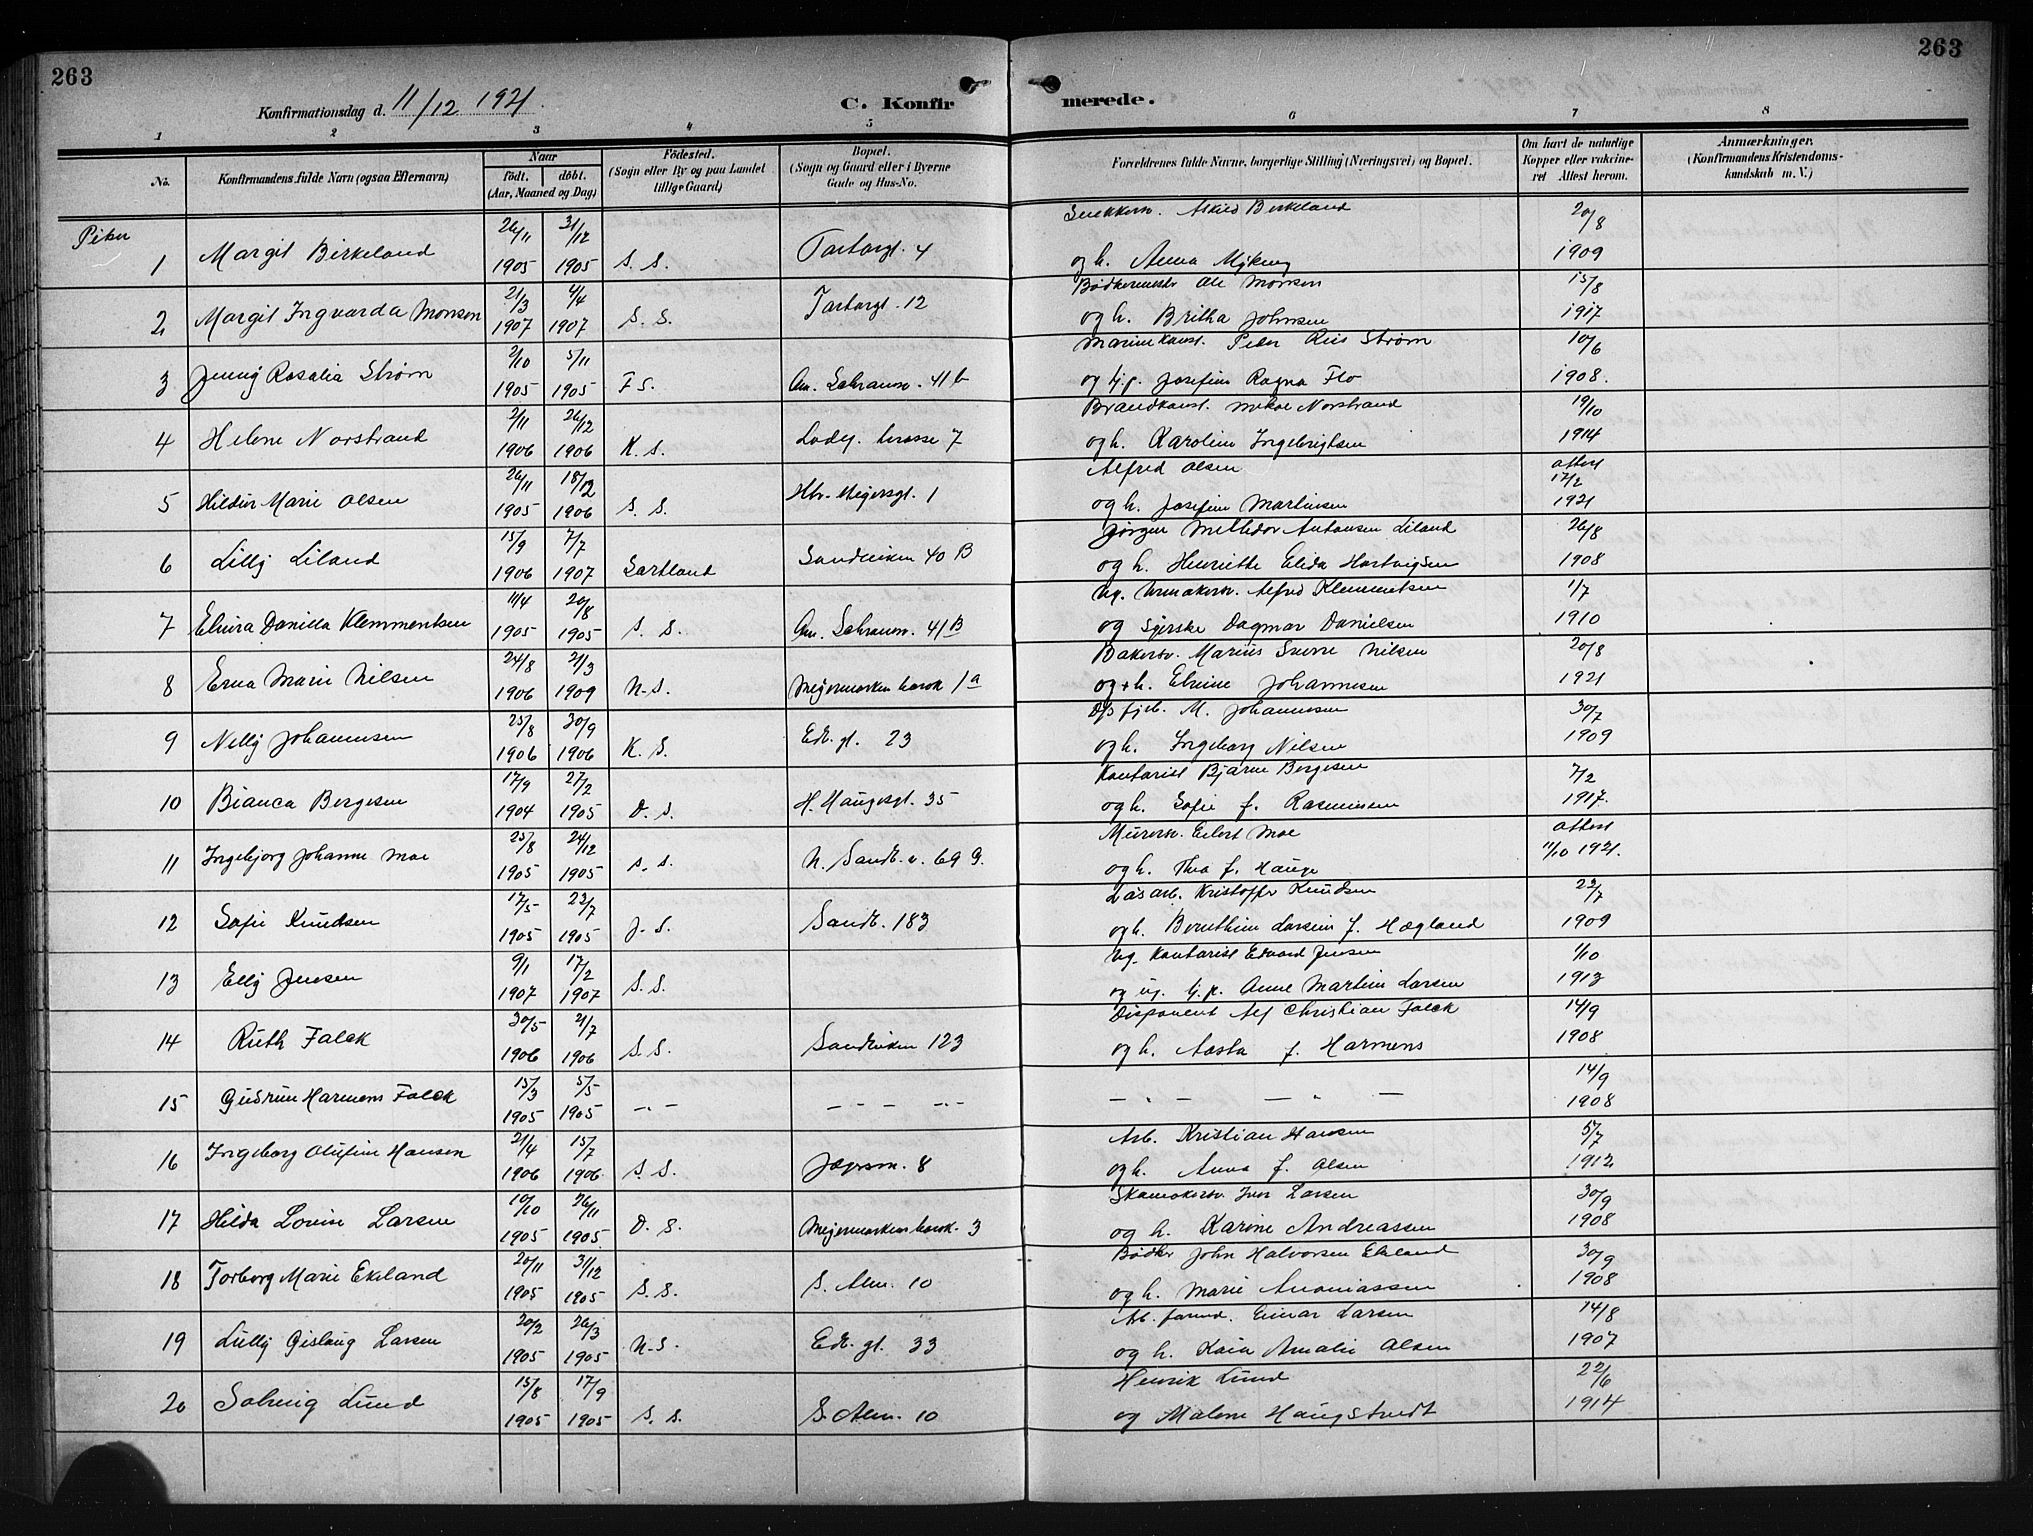 263
263
Konfirmationsdag d. 11/12 1921.
C. Konfirmerede.
1 2 3 4 5 6 7 8
No.
Konfirmandens fulde Navn (ogsaa Efternavn)
Naar
født. døbt.
(Aar, Maaned og Dag)
Fødested.
(Sogn eller By og paa Landet
tillige Gaard)
Bopæl.
(Sogn og Gaard eller i Byerne
Gade og Hus-No.
Forældrenes fulde Navne, borgerlige Stilling (Næringsvei) og Bopæl.
Om havt de naturlige
Kopper eller vakcine-
ret Attest herom.
Anmærkninger.
(Konfirmandens Kristendoms-
kundskab m. V.)
Piker
1 Margit Birkeland 26/11 1905 31/12 1905 S. S. 4 Birkeland og h. Anna 20/8 1909
2 Margit Ingvarda Monsen 21/3 1907 4/4 1907 S. S. 12 Ole Monsen og h. Britha Johnsen 15/8 1917
3 Jenny Rosalia Strøm 2/10 1905 5/11 1905 F S. 41 b Peder Strøm og Josefine Ragna Flo 10/6 1908.
4 Helene Norstrand 2/11 1906 26/12 1906 K. S. 7 Brandkonst. Norstrand og h. Karoline Ingebrigtsen 19/10 1914
5 Hildur Marie Olsen 26/11 1905 18/12 1906 S. S. 1 Alfred Olsen og h. Josefine Martinsen attest 17/2 1921
6 Lilly Liland 15/9 1906 7/7 1907 Sortland Sandviken 40 B Jørgen Antonsen Liland og h. Henriette Elida Hartvigsen 26/8 1908
7 Elvira Danilla Klemmentsen 11/4 1905 20/8 1905 S. S. 41 B Alfred Klemmentsen og Dagmar Danielsen 1/7 1910
8 Erna Marie Nilsen 24/8 1906 21/3 1909 N. S. 1 a Bakersv. Marius Nilsen og h. Johannesen 20/8 1921
9 Nelly Johannesen 25/8 1906 30/9 1906 K. S. 23 M. Johannesen og h. Ingeborg Nilsen 30/7 1909
10 Bianca Borgesen 17/9 1904 27/2 1905 D. S. H. Haugesgt. 35 Kontorist Bjarne Borgesen og h. Sofie f. Rasmussen 7/2 1917.
11 Ingebjørg Johanne Moe 25/8 1905 24/12 1905 S. S. N. Sandv. v. 69 g. Murersv. Eilert Moe og h. Thea f. Hauge attest 11/10 1921.
12 Sofie Knudsen 17/5 1905 23/7 1905 J. S. Sandv. 183 Løsarb. Kristoffer Knudsen og h. f. Hægland 23/7 1909
13 Elly Jensen 9/1 1907 17/2 1907 S. S. ug. Kontorist Edvard Jensen og ug. tj. p. Anne Martine Larsen 1/10 1913
14 Ruth Falck 30/5 1906 21/7 1906 S. S. Sandviken 123 Disponent Alf Christian Falck og h. Aasta f. Harmens 14/9 1908
15 Gudrun Harmens Falck 15/3 1905 5/5 1905 - " - - - - - " - - - " - - 14/9 1908
16 Ingeborg Olufine Hansen 21/4 1906 15/7 1906. S. S. 8 Arb. Kristian Hansen og h. Anna f. Olsen 5/7 1912
17 Hilda Lovise Larsen 10/10 1905 26/11 1905 D. S. 3 Skomakersv. Iver Larsen og h. Karine Andreassen 30/9 1908
18 Torborg Marie Ekeland 20/11 1905 31/12 1905 S. S. S. Alm. 10 Bødker John Halvorsen Ekeland og h. Marie Ananiassen 30/9 1908
19 Lully Gislaug Larsen 20/2 1905 26/3 1905 N. S. 33 Arb. formd. Einar Larsen og h. Kaia Amalie Olsen 14/8 1907
20 Solveig Lund 15/8 1905 17/9 1905 S. S. S. Alm. 10 Henrik Lund og Malene Haugstvedt 22/6 1914